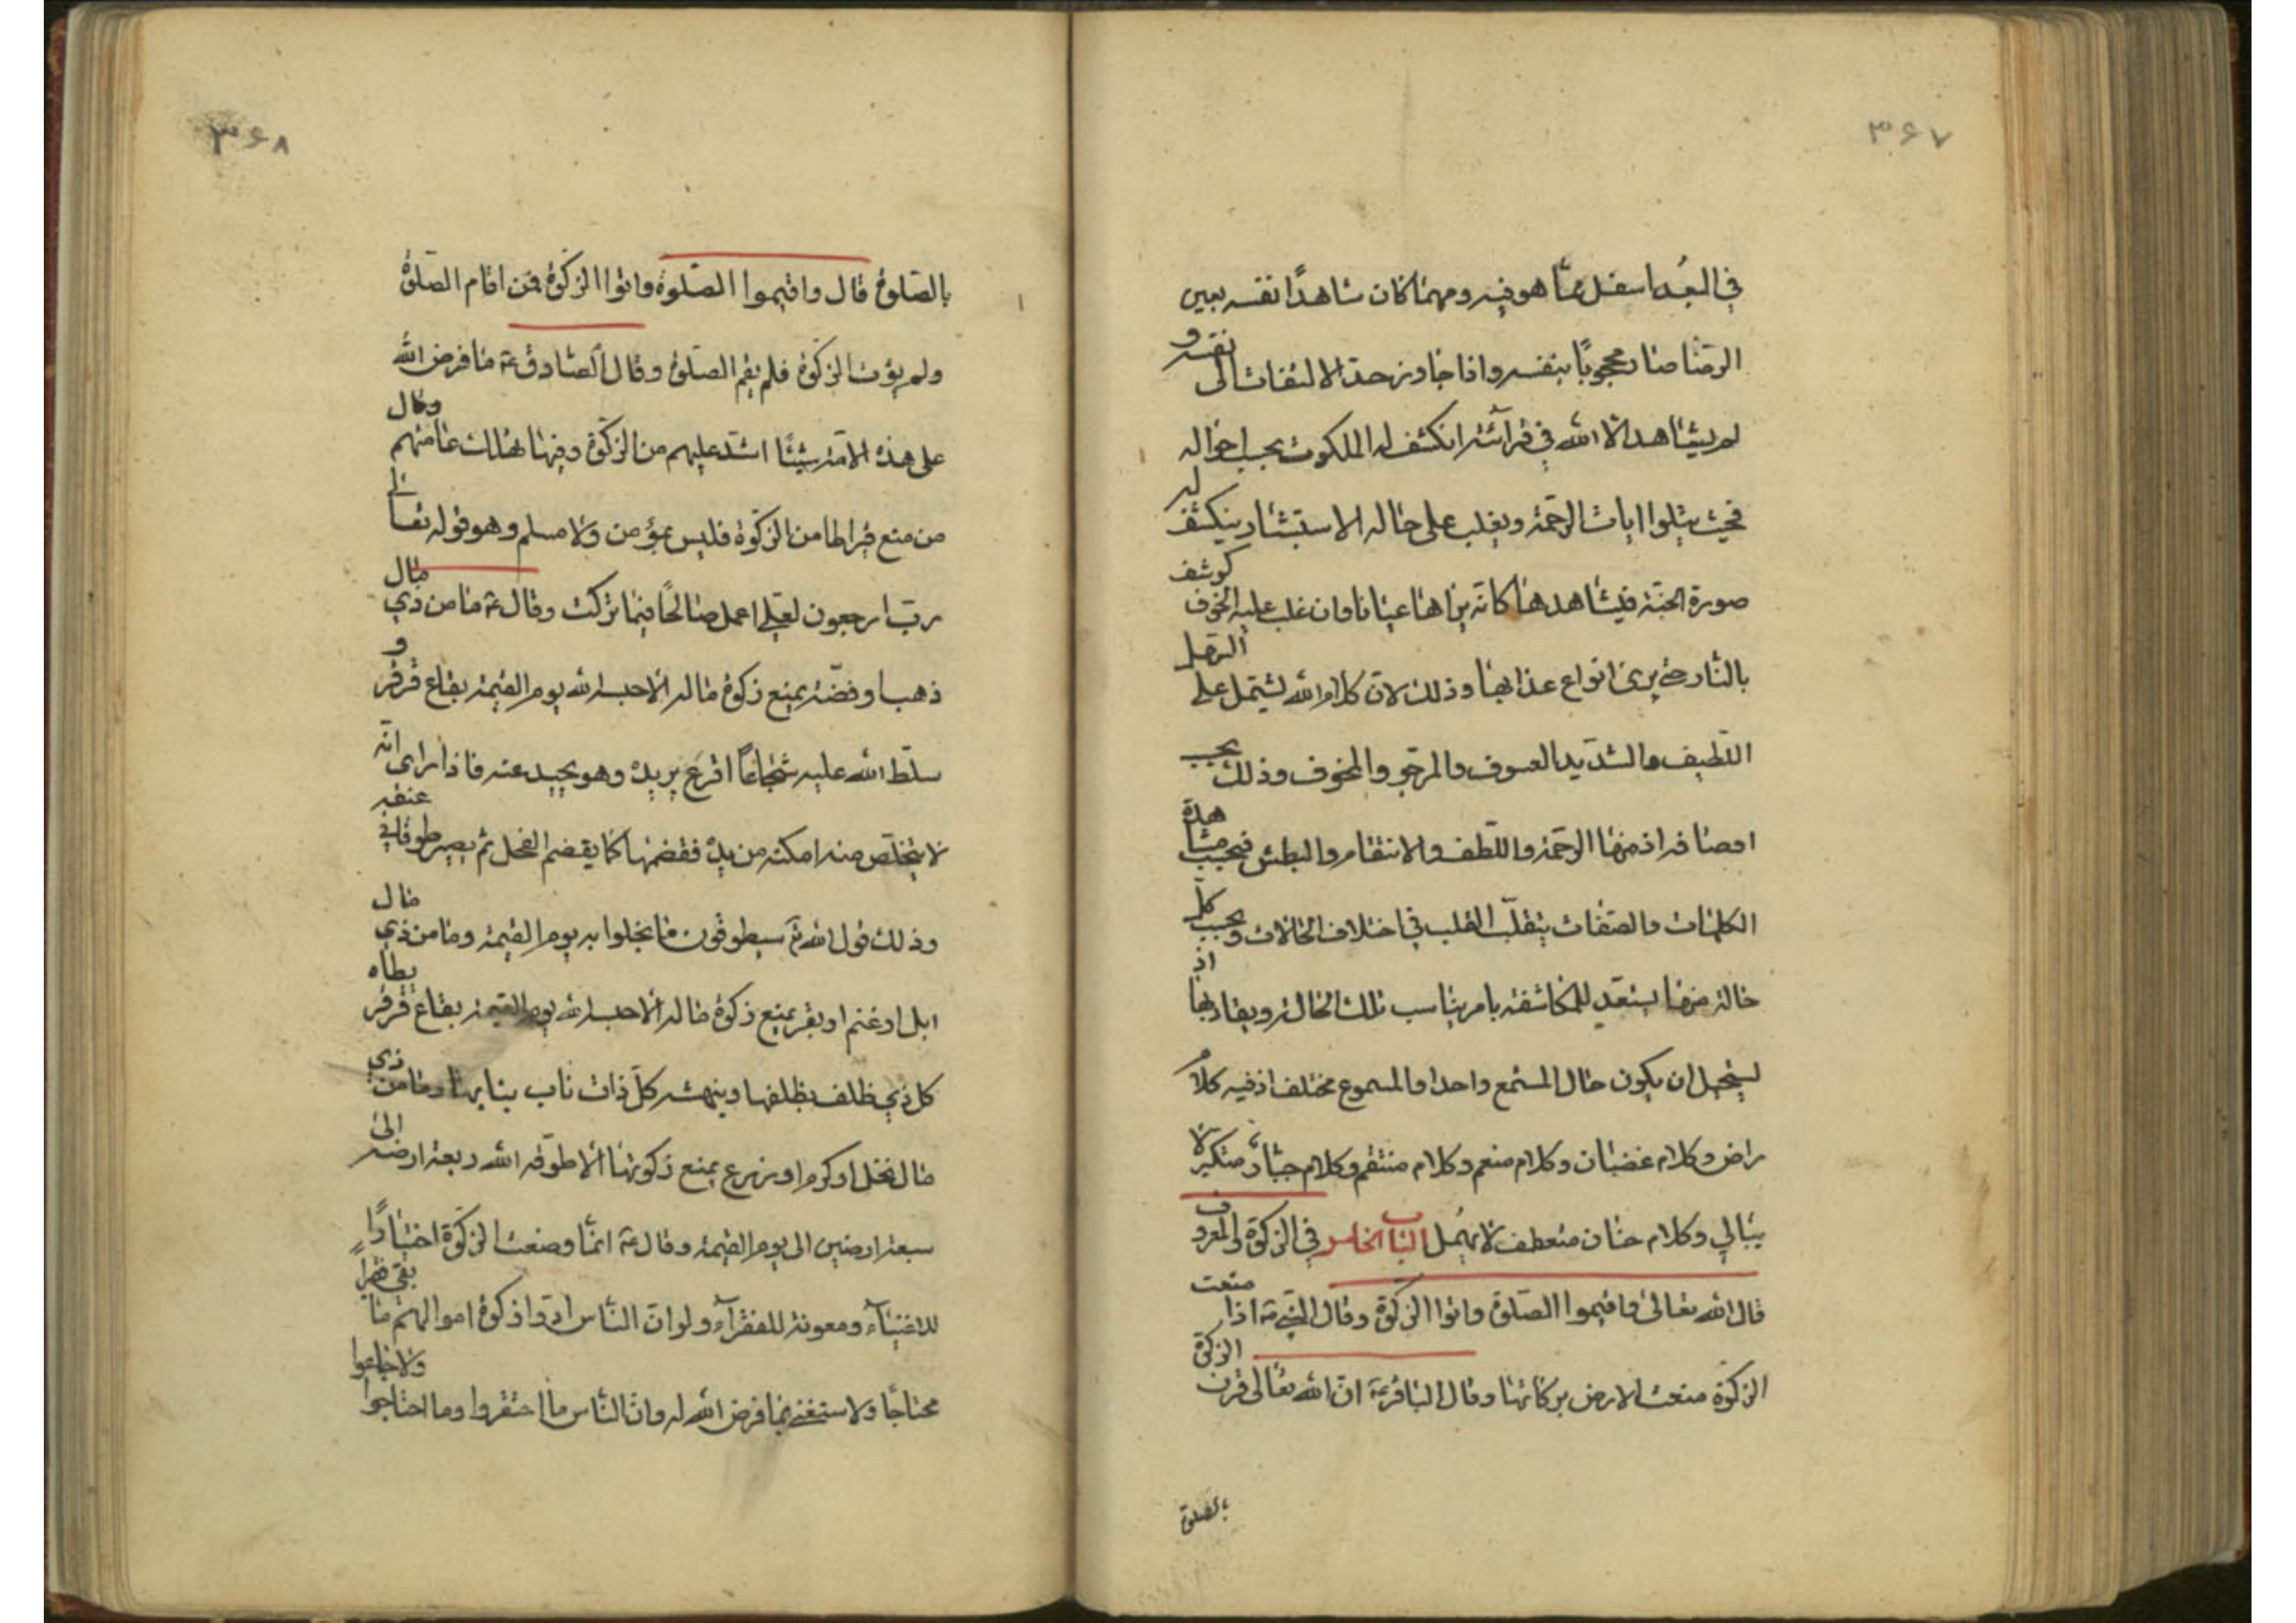 ۳۶۷
في البُعد اسفل ممّا هو فيه ومهما كان شاهدًا نفسه بعين
الرضا صار محجوبًا بنفسه واذا جاوز حدّ الالتفات الى نفسه و
لم يشاهد الا الله في قرآئته انكشف له الملكوت بحسب احواله
فحيث يتلوا ايات الرحمة ويغلب على حاله الاستبشار ينكشف له
صورة الجنّة فيشاهدها كانّه يراها عيانا وان غلب عليه الخوف كوشف
بالنار حتى يرى انواع عذابها وذلك لانّ كلام الله يشتمل على السّهل
اللّطيف والشّديد العسوف والمرجوّ والمخوف وذلك بحسب
اوصافه اذ منها الرّحمة واللّطف والانتقام والبطش فبحسب مشاهدة
الكلمات والصّفات يتقلّب القلب في اختلاف الحالات وبحسب كلّ
حالة منها يستعدّ للمكاشفة بامر يناسب تلك الحالة ويقاربها اذ
يستحيل ان يكون حال المستمع واحدا والمسموع مختلفا اذ فيه كلام
راض وكلام غضبان وكلام منعم وكلام منتقم وكلام جبّار متكبّر لا
يبالي وكلام حنّان متعطف لا يهمل الباب الخامس في الزكوة والمعروف
قال الله تعالى واقيموا الصّلوة واتوا الزّكوة وقال النّبيّ ص اذا منعت
الزكوة منعت الارض بركاتها وقال الباقر ع انّ الله تعالى قرن الزكوة
بالصلوة
۳۶۸
بالصّلوة قال واقيموا الصّلوة واتوا الزكوة فمن اقام الصّلوة
ولم يؤت الزّكوة فلم يقم الصّلوة وقال الصّادق ع ما فرض الله
على هذه الامّة شيئًا اشدّ عليهم من الزكوة وفيها تهلك عامّتهم وقال
من منع قيراطا من الزّكوة فليس بمؤمن ولا مسلم وهو قوله تعالى
ربّ ارجعون لعلّي اعمل صالحًا فيما تركت وقال ع ما من ذي مال
ذهب او فضّة يمنع زكوة ماله الّا حبسه الله يوم القيمة بقاع قرقر و
سلّط الله عليه شجاعًا اقرع يريده وهو يحيد عنه فاذا رأى انّه
لا يتخلّص منه امكنه من يده فقضمها كما يقضم الفحل ثم يصير طوقا في عنقه
وذلك قول الله تع سيطوقون ما بخلوا به يوم القيمة وما من ذي مال
ابل او غنم او بقر يمنع زكوة ماله الّا حبسه الله يوم القيمة بقاع قرقر يطأه
كل ذي ظلف بظلفها وينهشه كلّ ذات ناب بنابها وما من ذي
مال نخل او كرم او زرع يمنع زكوتها الّا طوّقه الله ريعة ارضه الى
سبعة ارضين الى يوم القيمة وقال ع انّما وضعت الزّكوة اختبارًا
للاغنياء ومعونة للفقرآء ولو انّ النّاس ادّوا زكوة اموالهم ما بقي فقيرًا
محتاجًا ولاستغنى بما فرض الله له وانّ النّاس ما افتقروا وما احتاجوا ولا جاعوا